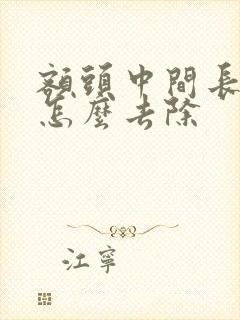 額頭中間長
怎麼去除
江寧